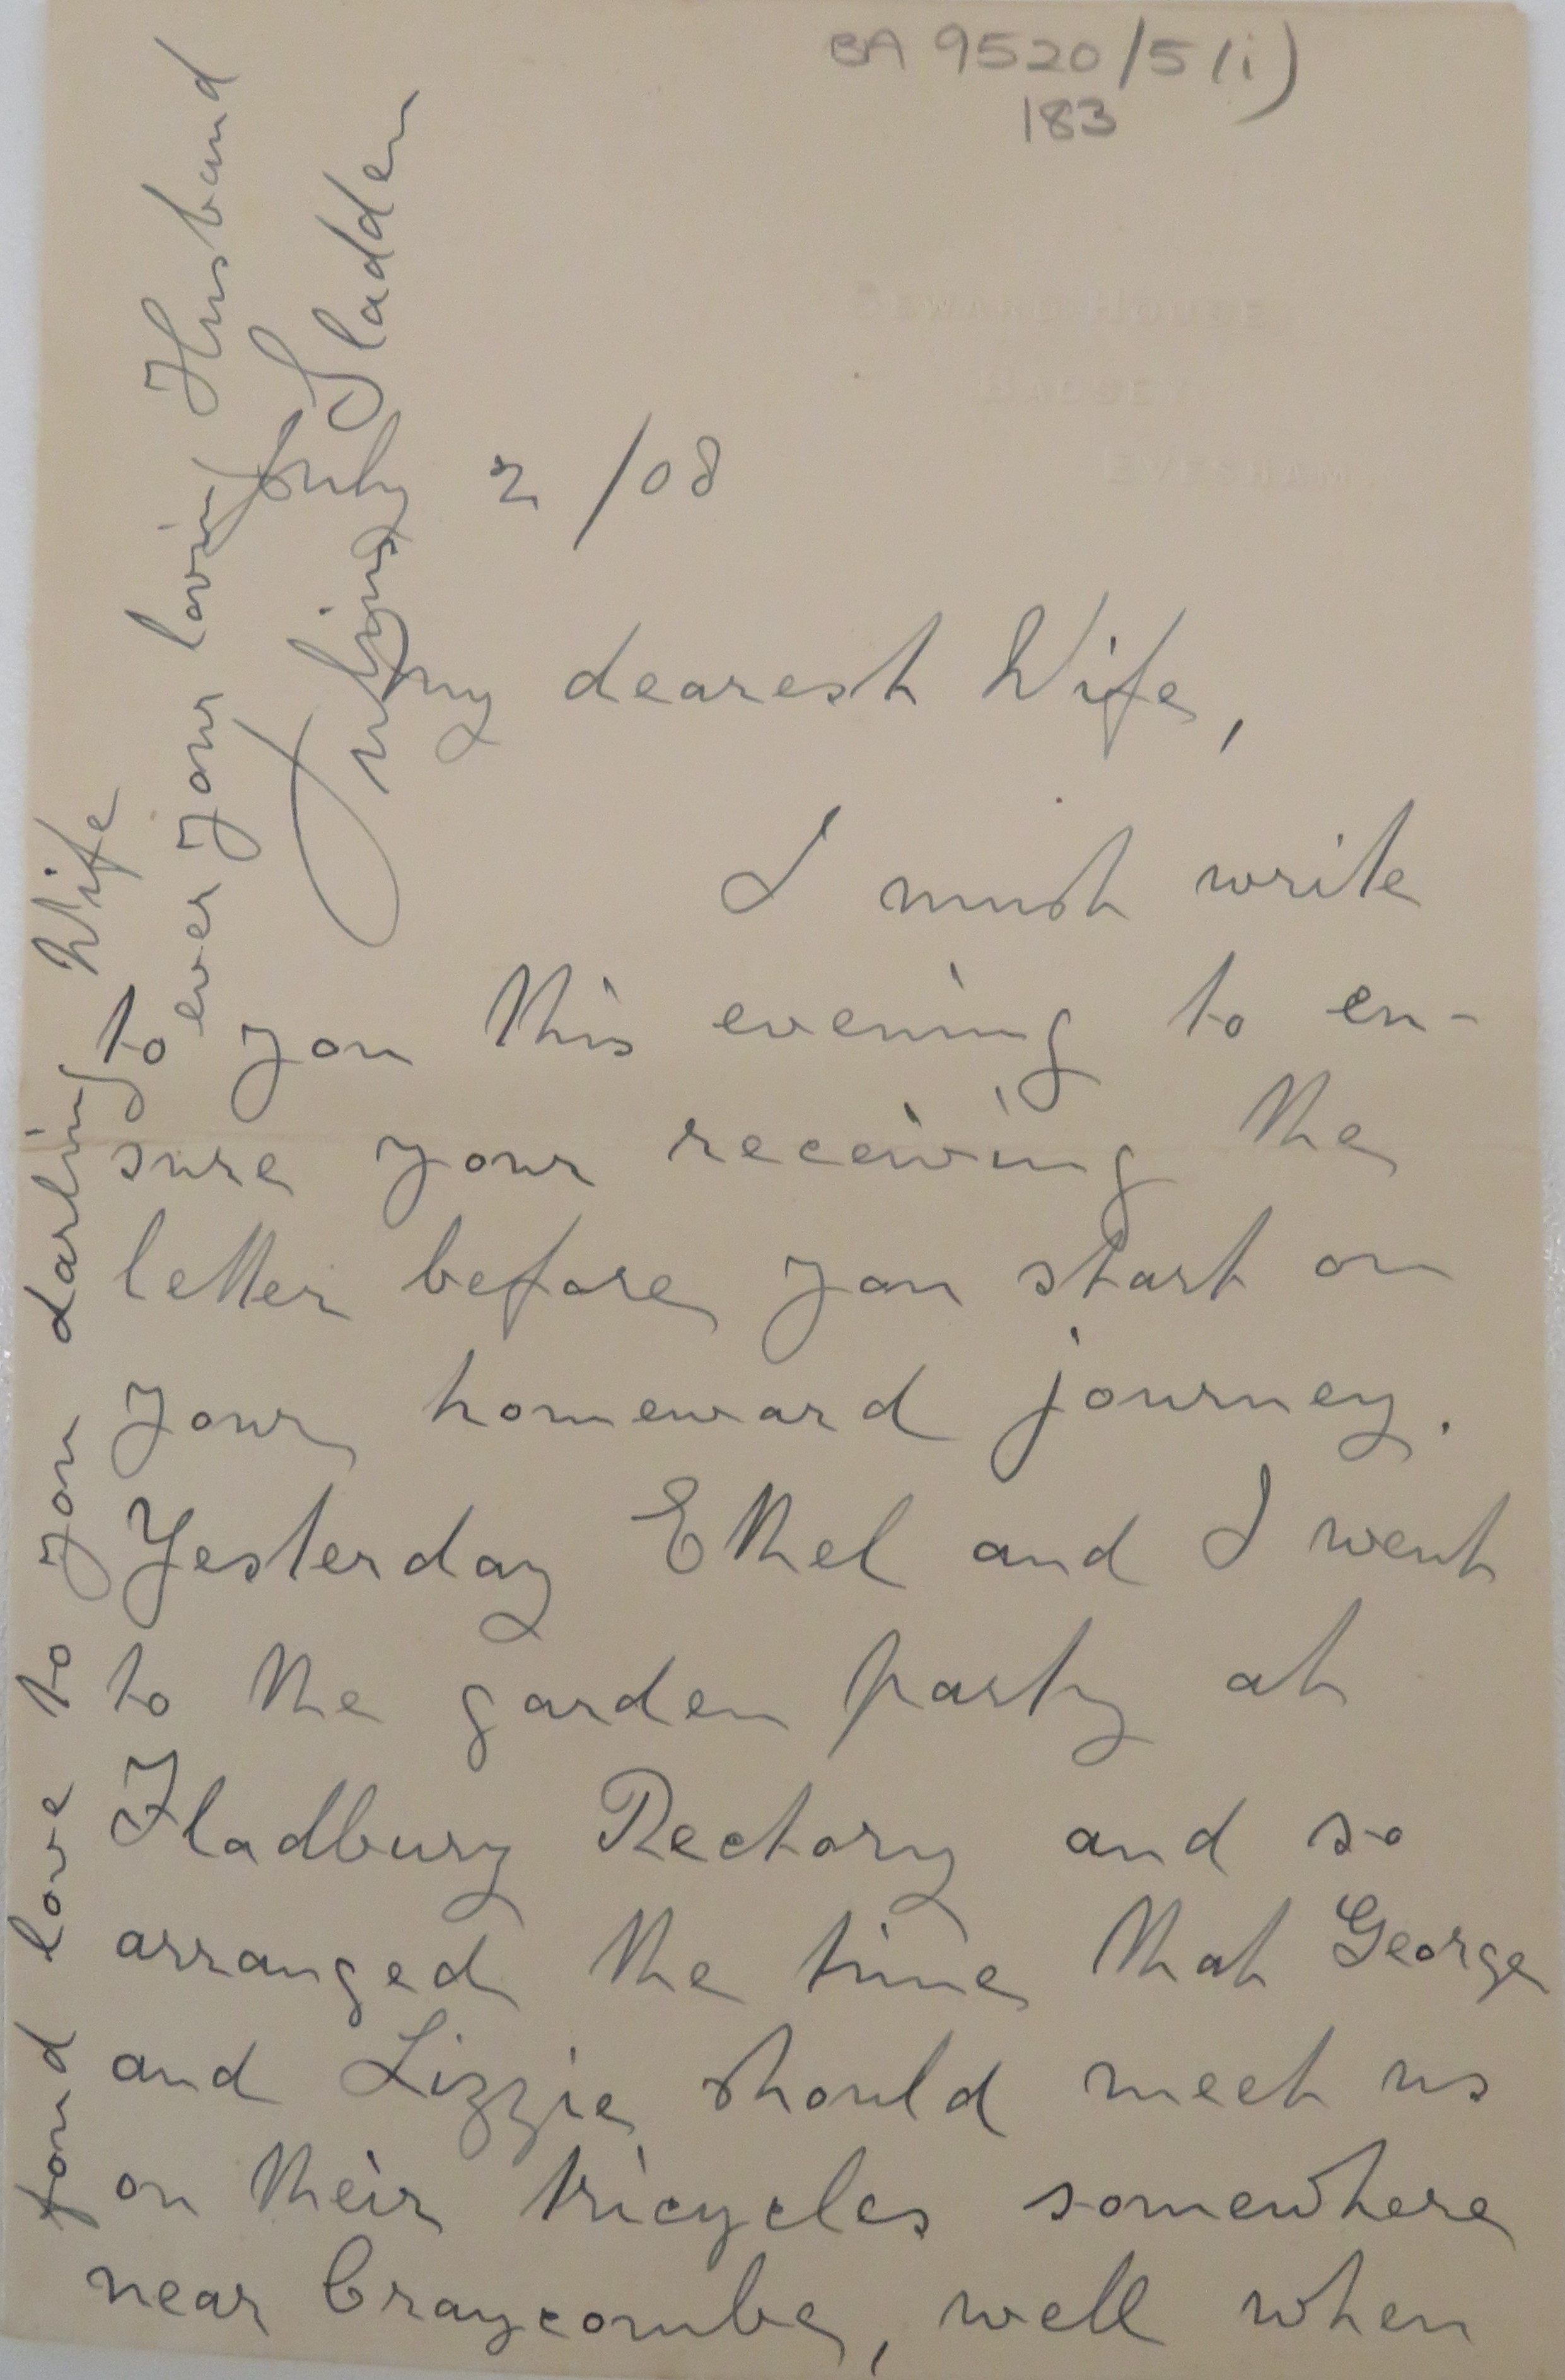 BA 9520/5(i)
183
SEWARD HOUSE,
BADSEY,
EVESHAM.
July 2/08
My dearest Wife,
I must write
to you this evening to en-
sure your receiving the
letter before you start on
your homeward journey.
Yesterday Ethel and I went
to the garden party at
Fladbury Rectory and so
arranged the time that George
and Lizzie should meet us
on their tricycles somewhere
near Craycombe, well when
fond love to you darling Wife
ever your loving Husband
Julius Sladden